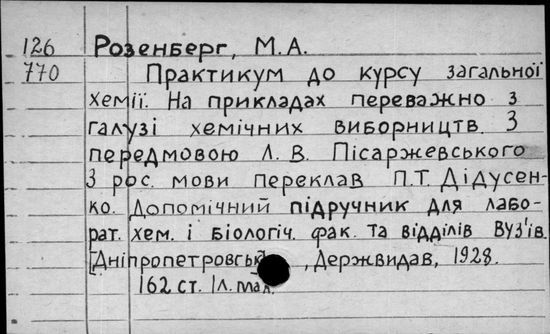 126 Розенберг, М.А.
770 Практикум до курсу загальної
хемії. На прикладах переважно з
галузі хемічних виборництв. З
передмовою Л. В. Пісаржевського
З рос. мови переклав П.Т. Дідусен-
ко. Допомічний підручник для лабо-
рат. хем. і біологіч. фак. та відділів ВУЗ'ів.
[Дніпропетровськ], Держвидав, 1928.
162 ст. 1л. мал.